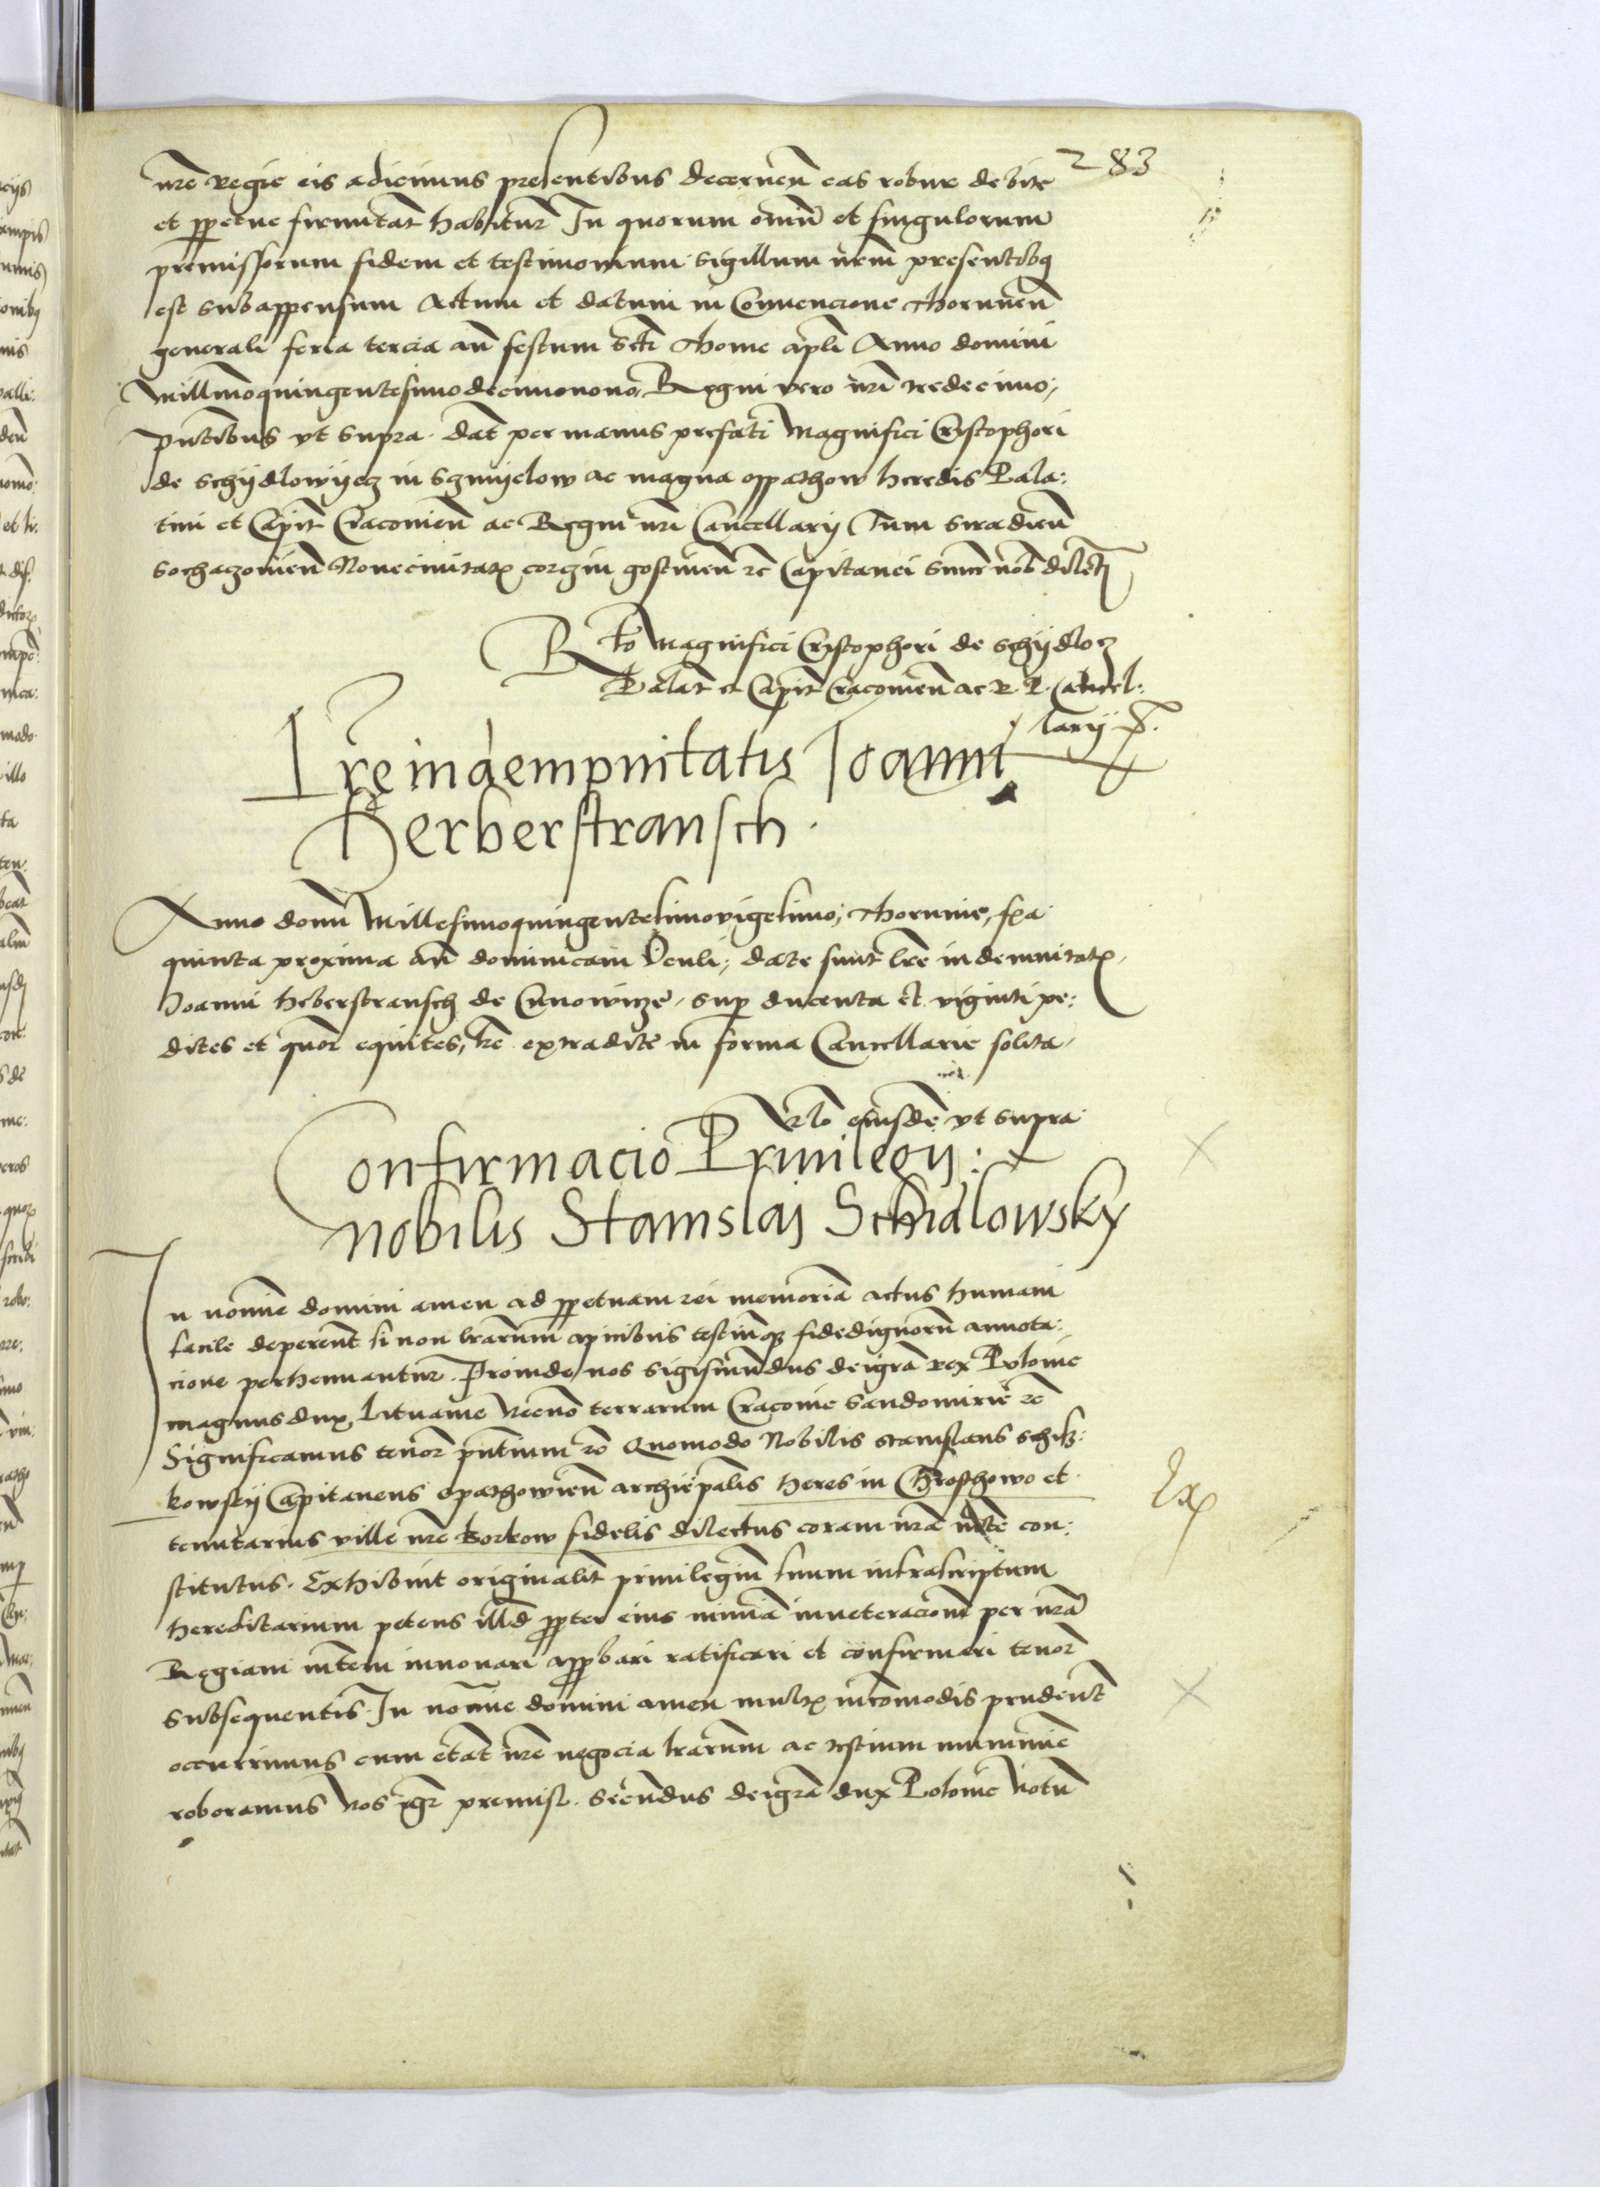 283
nr̃e regie eis adicimus presentibus decernen̄ eas robur debite
et ꝑpetue firmitat̃ habitur̃ In quorum om̄i et singulorum
premissorum fidem et testimonium sigillum nr̃m presentibq
est subappensum Actum et datum in Convencione thorunen̄
generali feria tercia an̄ festum Scti Thome apl̄i Anno domini
Millm̄oquingentesimodecimonono, Regni vero nr̃i tredecimo,
pñtibus vt supra. dat̃ per manus prefati Magnifici Cristophori
de schijdlowijecz in Szmijelow ac magna oppathow heredis Pala:
tini et Capit̃ Cracovien̄ ac Regni nr̃i Cancellarij Tum Siradien̄
Sochaczovien̄ Novecivitatꝭ corczin gostinen̄ zc̄ Capitanei sincer̃ nob̄ dilcti
Rl̄o Magnifici Cristophori de schijdlo:
Palat̃ et Capit̃ Cracovien̄ ac R. P. Cancel:
larij p̃.
Lr̃e indempnitatis Joanni
Herberstransch.
Anno domi Millesimoquingentesimovigesimo, Thorunie, fr̃a
quinta proxima an̄ dominicam Oculi, date sunt lr̃e indemnitatꝭ,
Joanni Heberstransch de Cunowicze, sup̱ ducenta et viginti pe:
dites et quor̃ equites, lr̃e extradite in forma Cancellarie solita,
Rl̄o eiusdē vt supra
Confirmacio Privilegij:
nobilis Stanislai Schidlowsky
In nomīe domini amen ad ꝑpetuam rei memoriā actus humani
facile deperent̄ si non lr̃arum apicibus testiūqꝫ fidedignorū annota:
cione perhennantur̃. Proinde nos Sigismūdus dei gr̃a rex Polonie
magnus dux Lituanie necnō terrarum Cracovie Sandomirie zc̄
Significamus tenor̃ pñtium zc̄ Quomodo Nobilis stanislaus schid:
kowskij Capitaneus opathowien̄ archiep̄alis heres in Groschowo et
tenutarius ville nr̃e korkow fidelis dilectus coram nr̃a mt̄e con:
stitutus. Exhibuit originalit̃ privilegiū suum infrascriptum
hereditarium petens ill̄d ꝓpter eius nimiā inveteracionē per nr̃ā
Regiam mt̄em innovari approbari ratificari et confirmari tenor̃
subsequentis. In nomīe domini amen multꝭ incōmodis prudent̃
occurrimus cum etat̃ nr̃e negocia lr̃arum ac testium munimīe
roboramus Nos igr̃ premisl. secūdus dei gr̃a dux Polonie Notū
Ex